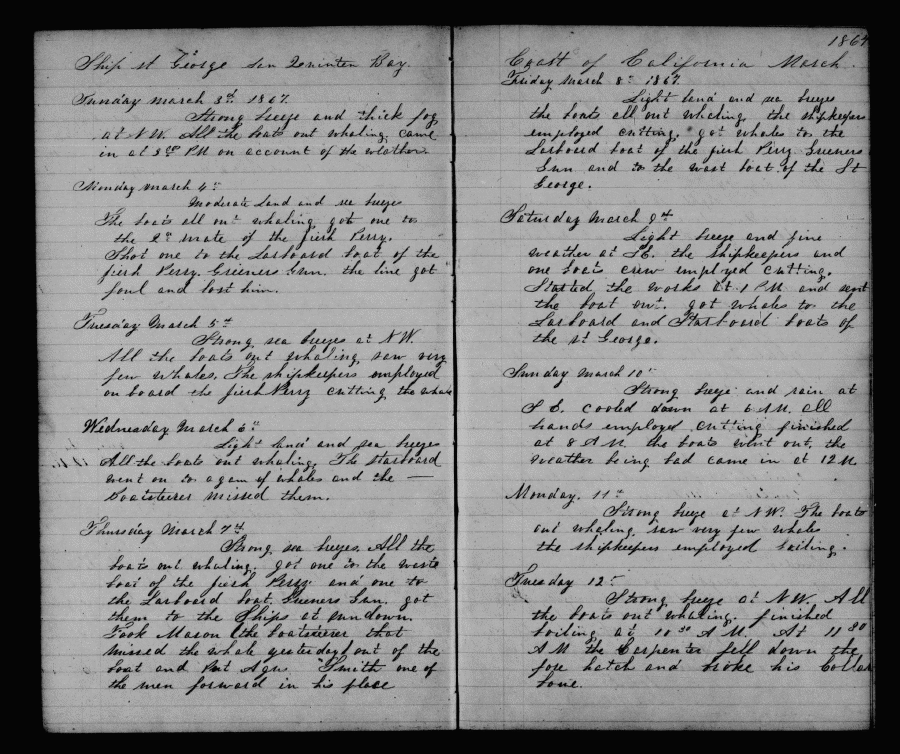 Ship St George San Quinten Bay.
Sunday March 3rd 1867.
Strong breeze and thick fog
at N.W. All the boats out whaling, came
in at 3 30 PM on account of the weather.
Monday March 4th
Moderate land and sea breezes
The boats all out whaling, got one to
the 2nd mate of the fresh Perry.
Shot one to the Larboard boat of the
fresh Perry. Greeners Gun. the line got
foul and lost him.
Tuesday March 5th
Strong sea breezes at N.W.
All the boats out whaling, saw very
few whales. The shipkeepers employed
on board the fresh Perry cutting the whale
Wednesday March 6th
Light land and sea breezes
All the boats out whaling, The Starboard
went on to a gam of whales and the —
Boatsteerer missed them.
Thursday March 7th
Strong sea breezes. All the
boats out whaling. got one to the waste
boat of the fresh Perry and one to
the Larboard boat. Greeners Gun. got
them to the Ships at sundown.
Took Mason (the boatsteerer that
missed the whale yesterday) out of the
boat and put Smith one of
the men forward in his place
1867
Coast of California March.
Friday March 8th 1867.
Light land and sea breezes
the boats all out whaling, the shipkeepers
employed cutting. got whales to the
Larboard boat of the fresh Perry Greeners
Gun and to the wast boat of the St
George.
Saturday March 9th
Light breeze and fine
weather at S.E. the shipkeepers and
one boats crew employed cutting.
Started the works at 1 PM and sent
the boat out. got whales to the
Larboard and Starboard boats of
the St George.
Sunday March 10th
Strong breeze and rain at
S E. cooled down at 6 AM. all
hands employed cutting finished
at 8 AM the boats went out, the
weather being bad came in at 12 M.
Monday. 11th
Strong breeze at N.W. The boats
out whaling, saw very few whales
the shipkeepers employed boiling.
Tuesday 12th
Strong breeze at N.W. All
the boats out whaling. finished
boiling at 10 30 A M. At 11 30
AM the Carpenter fell down the
fore hatch and broke his Collar
bone.